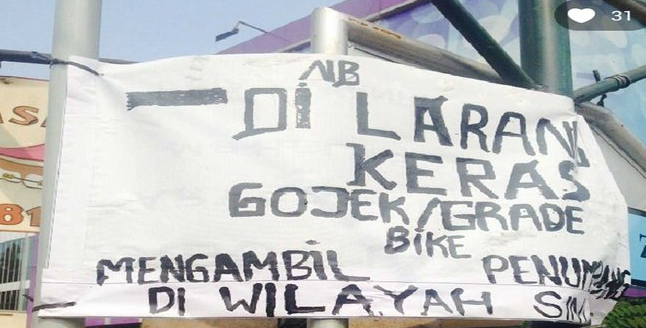 31
NB
DI LARANG
KERAS
GOJEK/GRADE
BIKE
MENGAMBIL PENUMPANG
DI WILAYAH